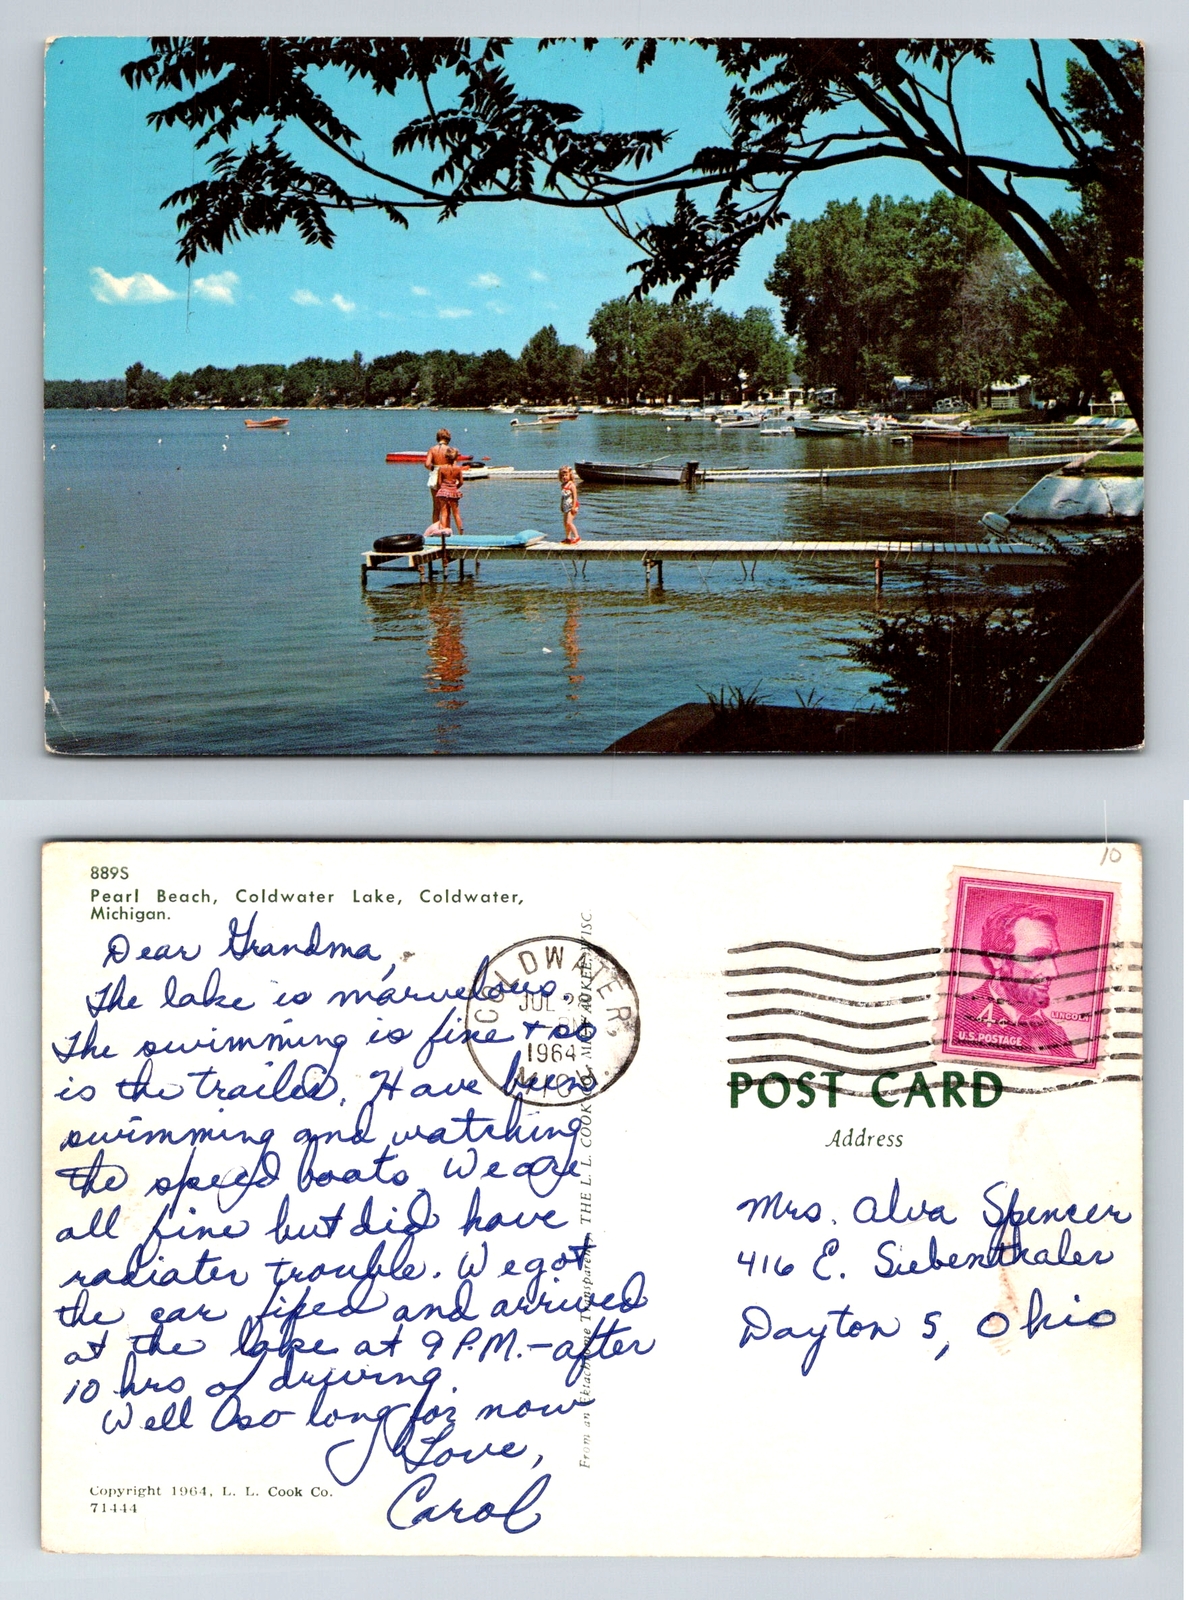 889S
Pearl Beach, Coldwater Lake, Coldwater,
Michigan.
Dear Grandma,
The lake is marvelous.
The swimming is fine + so
is the trailer. Have been
swimming and watching
the speed boats. We are
all fine but did have
radiater trouble. We got
the car fixed and arrived
at the lake at 9 P.M. - after
10 hrs of driving.
Well so long for now
Love,
Carol
Copyright 1964, L. L. Cook Co.
71444
From an Ektachrome Transparency THE L. L. COOK CO. MILWAUKEE, WISC.
COLDWATER,
JUL
1964
MICH.
10
4¢
LINCOLN
U.S. POSTAGE
POST CARD
Address
Mrs. Alva Spencer
416 E. Siebenthaler
Dayton 5, Ohio